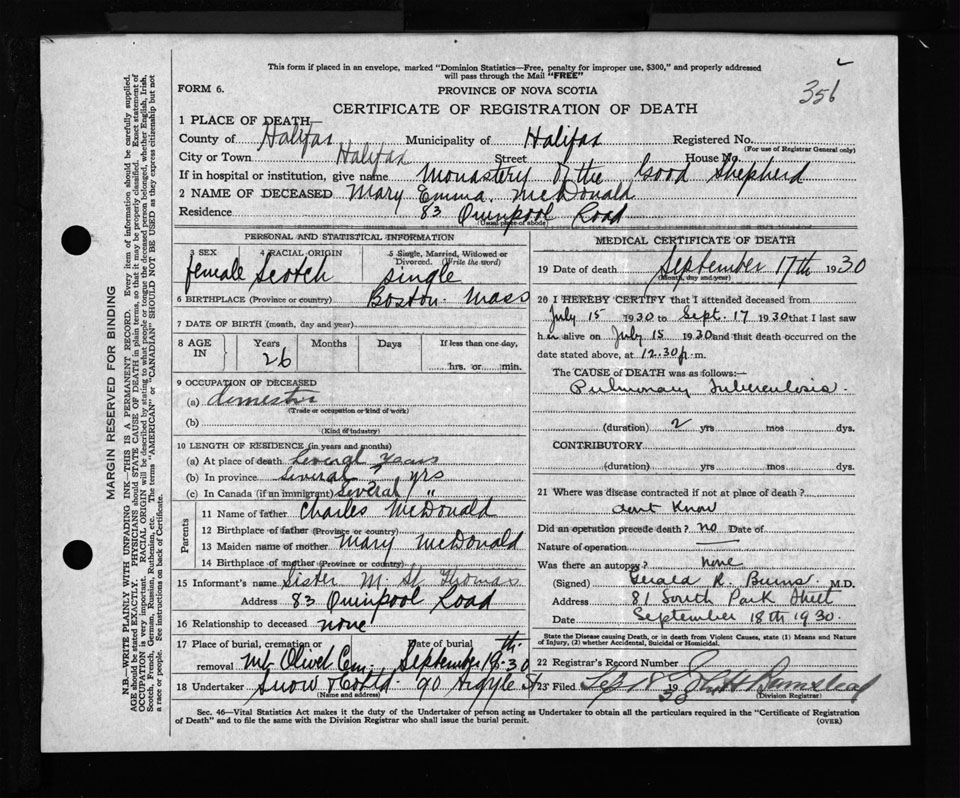 This form if placed in an envelope, marked "Dominion Statistics—Free, penalty for improper use, $300," and properly addressed
will pass through the Mail "FREE"
356
FORM 6.
PROVINCE OF NOVA SCOTIA
CERTIFICATE OF REGISTRATION OF DEATH
1 PLACE OF DEATH
County of Halifax Municipality of Halifax Registered No.
(For use of Registrar General only)
City or Town Halifax Street House No.
If in hospital or institution, give name Monastery of the Good Shepherd
2 NAME OF DECEASED Mary Emma McDonald
Residence 83 Quinpool Road
(Usual place of abode)
PERSONAL AND STATISTICAL INFORMATION
3 SEX 4 RACIAL ORIGIN 5 Single, Married, Widowed or
Divorced. (Write the word)
female Scotch single
6 BIRTHPLACE (Province or country) Boston. Mass
7 DATE OF BIRTH (month, day and year)
8 AGE IN Years Months Days If less than one day,
26 hrs. or min.
9 OCCUPATION OF DECEASED
(a) domestic
(Trade or occupation or kind of work)
(b)
(Kind of industry)
10 LENGTH OF RESIDENCE (in years and months)
(a) At place of death Several Years
(b) In province Several yrs
(c) In Canada (if an immigrant) Several "
Parents
11 Name of father Charles McDonald
12 Birthplace of father (Province or country)
13 Maiden name of mother Mary McDonald
14 Birthplace of mother (Province or country)
15 Informant's name Sister M. St. Thomas
Address 83 Quinpool Road
16 Relationship to deceased none
17 Place of burial, cremation or Date of burial
removal Mt Olivet Cem. September 18th 30
18 Undertaker Snow & Co Ltd. 90 Argyle St
(Name and address)
MEDICAL CERTIFICATE OF DEATH
19 Date of death September 17th 1930
(Month, day and year)
20 I HEREBY CERTIFY that I attended deceased from
July 15 1930 to Sept. 17 1930 that I last saw
her alive on July 15 1930 and that death occurred on the
date stated above, at 12.30 p.m.
The CAUSE OF DEATH was as follows:—
Pulmonary Tuberculosis.
(duration) 2 yrs mos dys.
CONTRIBUTORY
(duration) yrs. mos. dys.
21 Where was disease contracted if not at place of death?
dont know
Did an operation precede death? no Date of
Nature of operation
Was there an autopsy? none
(Signed) Gerald R. Burns. M.D.
Address 81 South Park Street
Date September 18th 1930.
State the Disease causing Death, or in death from Violent Causes, state (1) Means and Nature
of Injury, (2) whether Accidental, Suicidal or Homicidal.
22 Registrar's Record Number
23 Filed Sep 18 1930
(Division Registrar)
Sec. 46—Vital Statistics Act makes it the duty of the Undertaker of person acting as Undertaker to obtain all the particulars required in the "Certificate of Registration
of Death" and to file the same with the Division Registrar who shall issue the burial permit.
(OVER)
MARGIN RESERVED FOR BINDING
N.B.—WRITE PLAINLY WITH UNFADING INK—THIS IS A PERMANENT RECORD. Every item of information should be carefully supplied.
AGE should be stated EXACTLY. PHYSICIANS should STATE CAUSE OF DEATH in plain terms, so that it may be properly classified. Exact statement of
OCCUPATION is very important. RACIAL ORIGIN will be described by stating to what people or tongue the deceased person belonged, whether English, Irish,
Scotch, French, German, Russian, Ruthenian, etc. The terms "AMERICAN" or "CANADIAN" SHOULD NOT BE USED as they express citizenship but not
a race or people. See instructions on back of Certificate.